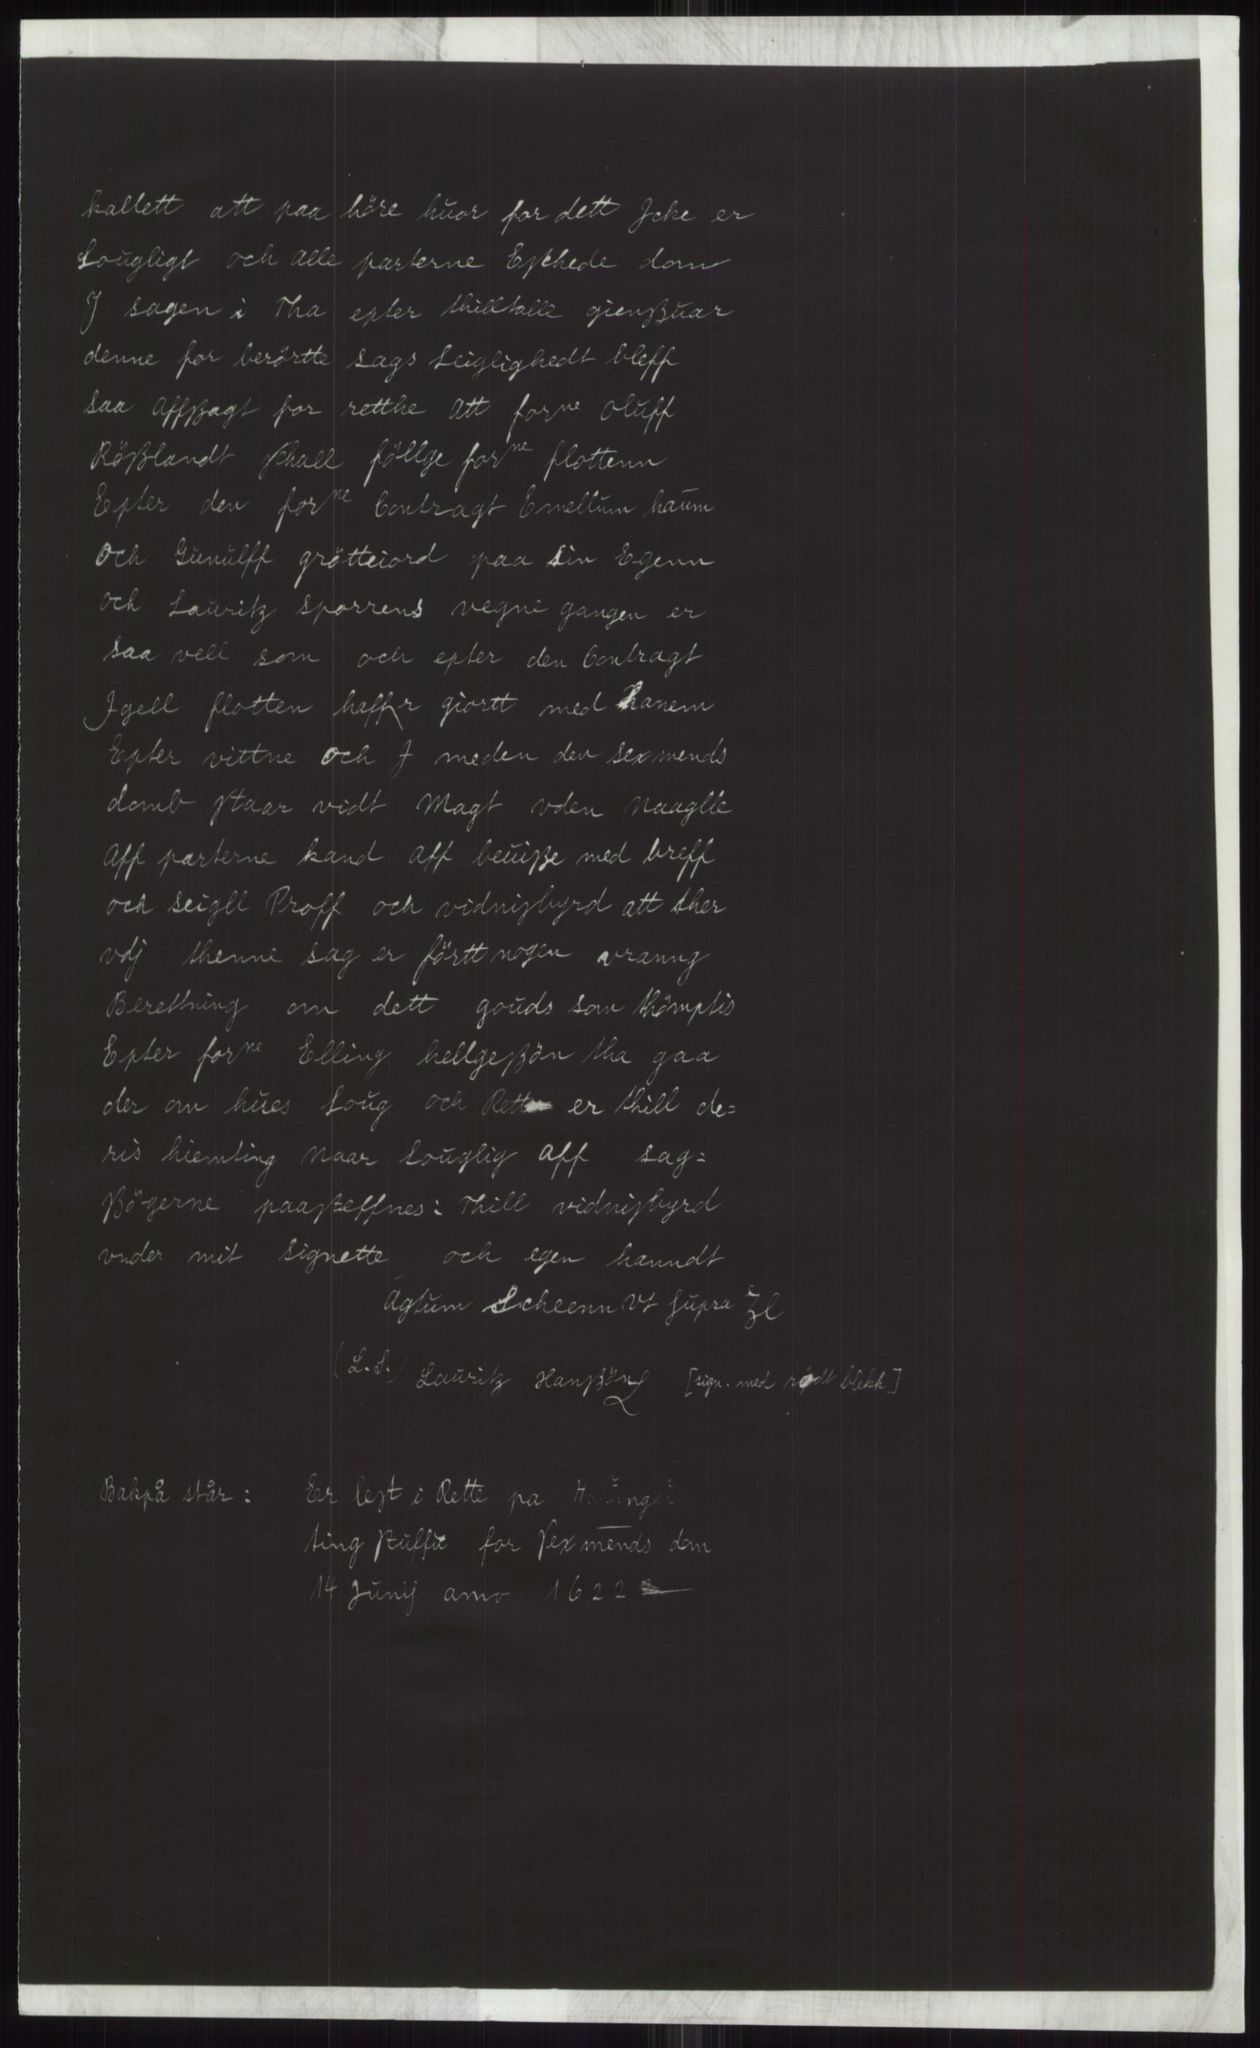 kallett att paa höre huor for dett Jcke er
Lougligt och alle parterne Eskhede dom
J sagen i Tha epter thilltalle gienßuar
denne for berörtte sags Leiglighedt bleff
saa affßagt for retthe att forne oluff
Rößlandt skall föllge forne flottenn
Epter den forne Contragt Emellum haum
och Gunulff grötteiord paa sin Egenn
och Lauritz sporrens vegne gangen er
saa vell som och epter den Contragt
Jgell flotten haffr giortt med hanem
Epter vittne och J meden den sexmends
domb staar vidt Magt vden naaglle
Aff parterne kand aff beuiße med breff
och seigll Proff och vidnisbyrd att ther
vdj thenne sag er förtt nogen vranng
Berettning om dett gouds som thömptis
Epter forne Elling hellgeßön tha gaa
der om hues Loug och Rett er thill de=
ris hiemting naar Louglig aff sag=
ßögerne paasteffnes: Thill vidnisbyrd
vnder mit signette och egen hanndt
Agtum Scheenn vt supra
(L.S.) Lauritz Hanßön [sign. med rødt blekk]
Bakpå står: Er lest i Rette pa
ting stuffue for sex mends dom
14 Junij anno 1622